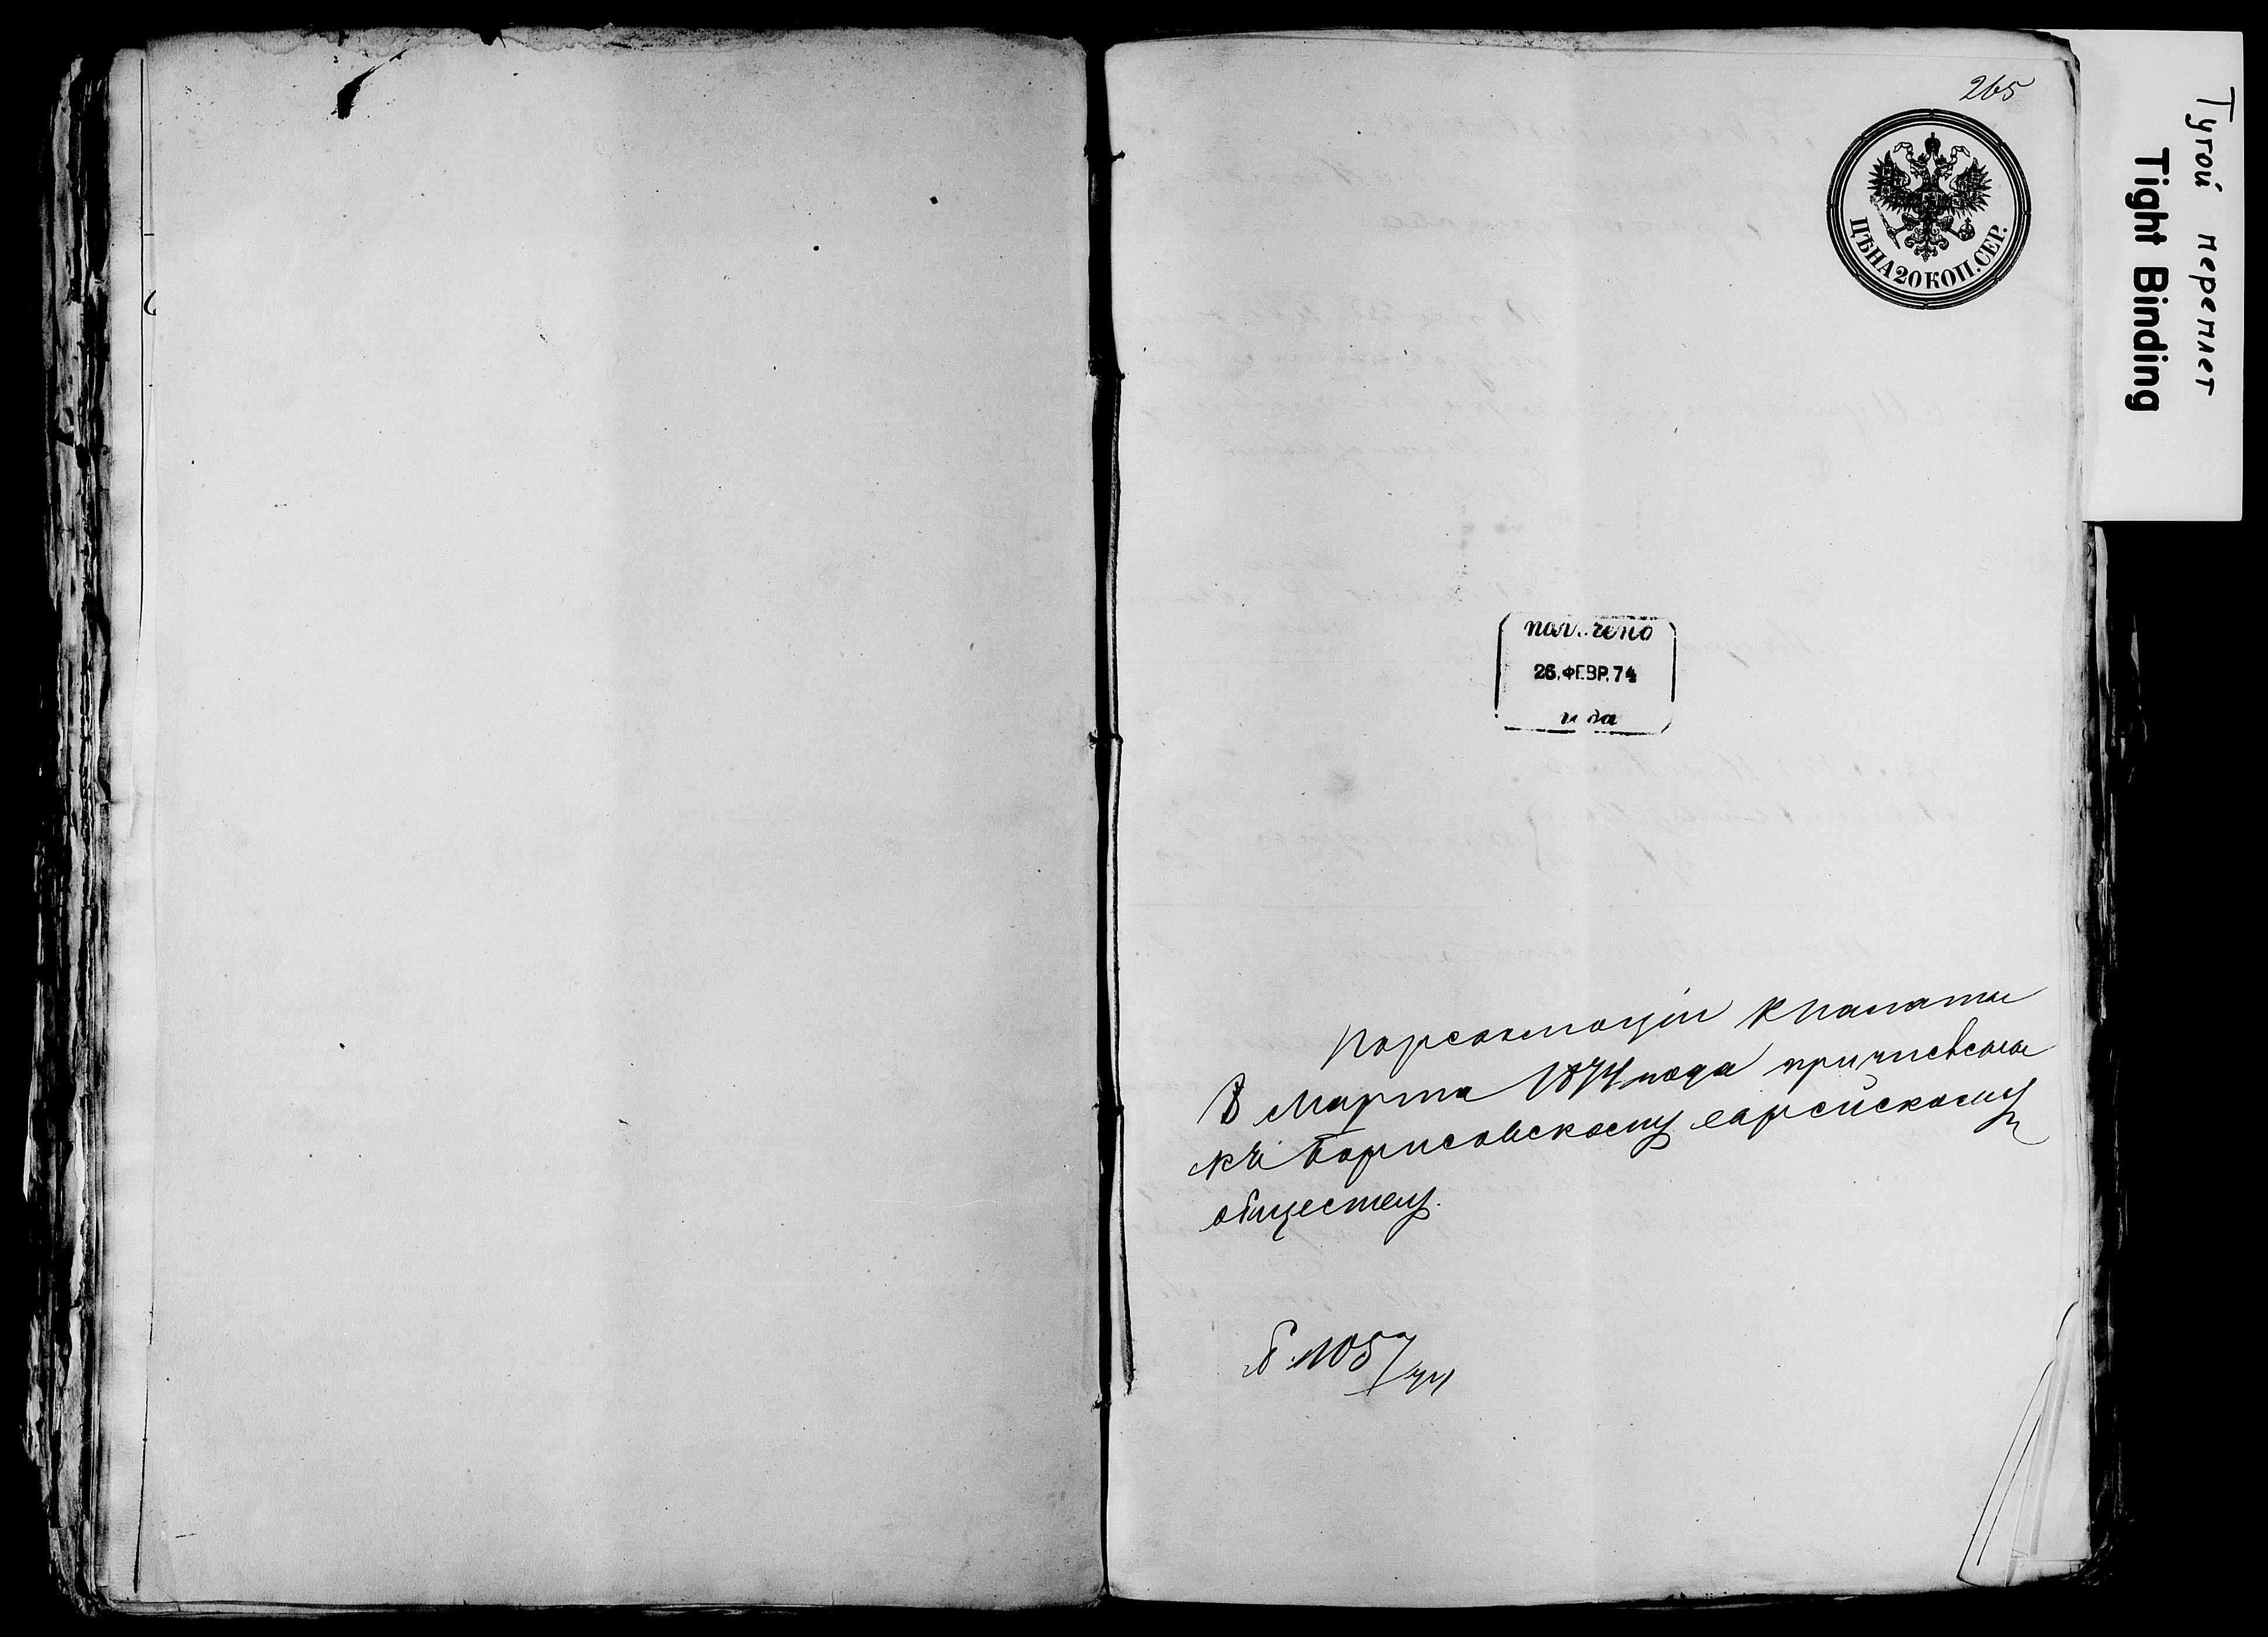 265
ЦѢНА 20 КОП. СЕР.
Тугой переплет
Tight Binding
26. ФЕВР. 74
палаты
8 Марта 1874 года причислены
къ Борисовскому еврейскому
обществу.